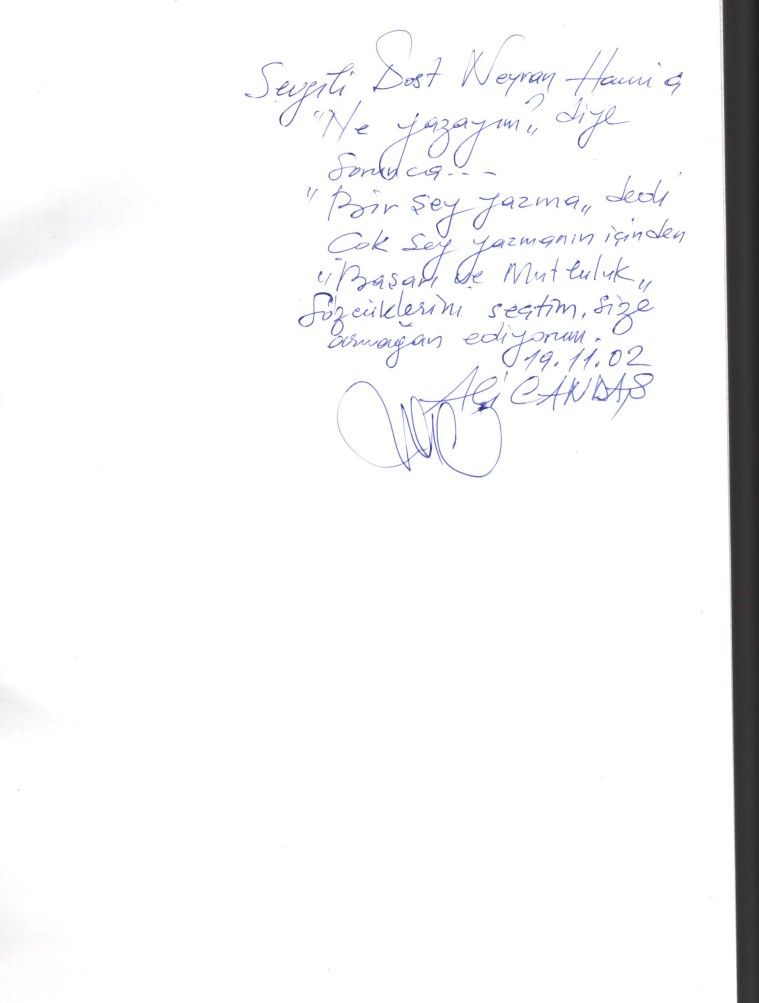 Sevgili Dost Neyran Hanıma
"Ne yazayım?" diye
sorunca---
"Bir şey yazma" dedi
Çok şey yazmanın içinden
"Başarı ve Mutluluk"
Sözcüklerini seçtim, size
armağan ediyorum.
19.11.02
Ali CANDAŞ